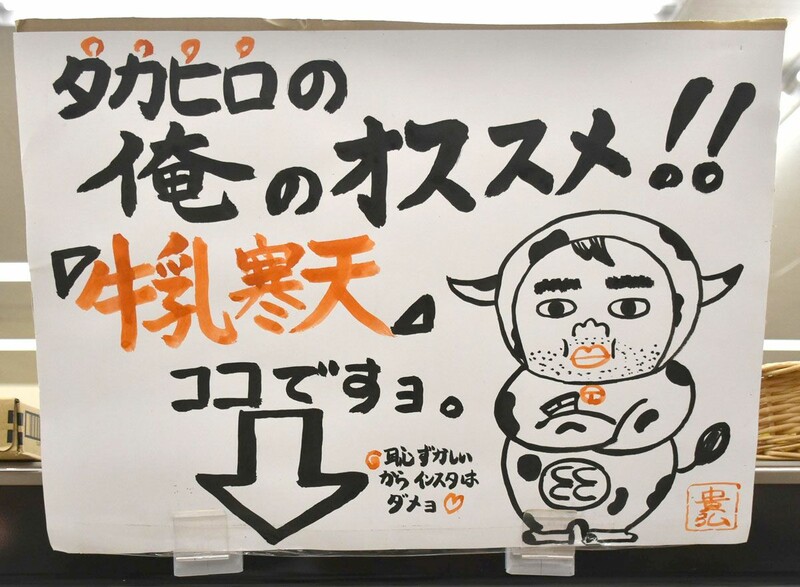 タカヒロの
俺のオススメ!!
『牛乳寒天』
ココですョ。
恥ずかしい
からインスタは
ダメョ♡
貴弘